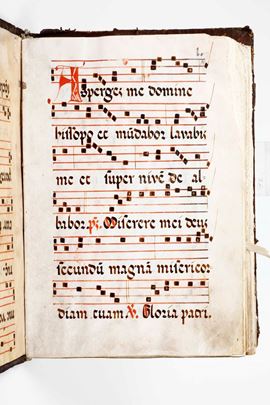 Asperges me domine
hissopo et mūdabor lavabis
me et super nivē de al
babor. ps. Miserere mei deus
secundū magnā misericor
diam tuam ℣. Gloria patri.